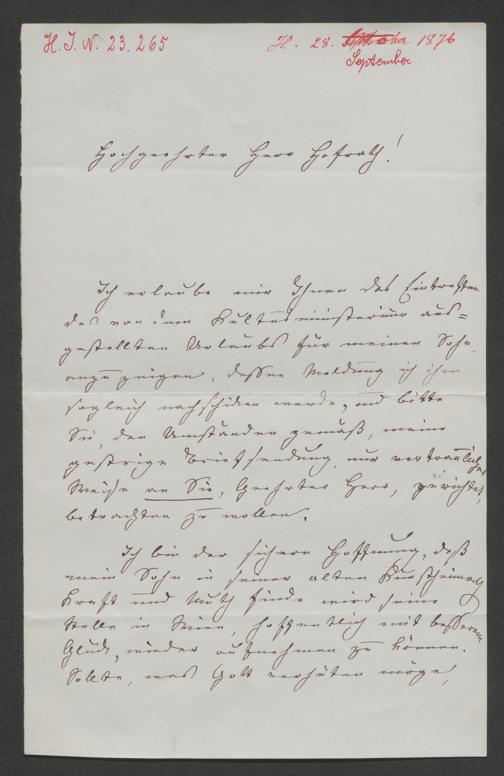 H. I. N. 23.265
H. 28. October 1876
September
Hochgeehrter Herr Hofrath!
Ich erlaube mir Ihnen das Eintreffen
des von dem Kultusministerium aus=
gestellten Urlaubs für meinen Sohn,
anzuzeigen, dessen Meldung ich ihm
sogleich nachschicken werde, und bitte
Sie, den Umständen gemäß, meine
gestrige Briefsendung, nur vertraulicher
Weise an Sie, geehrter Herr, gerichtet,
betrachten zu wollen.
Ich bin der sichern Hoffnung, daß
mein Sohn in seiner alten
Kraft und Muth finden wird seine
Stelle in Wien, hoffentlich mit besserem
Glück, wieder aufnehmen zu können.
Sollte, was Gott verhüten möge,